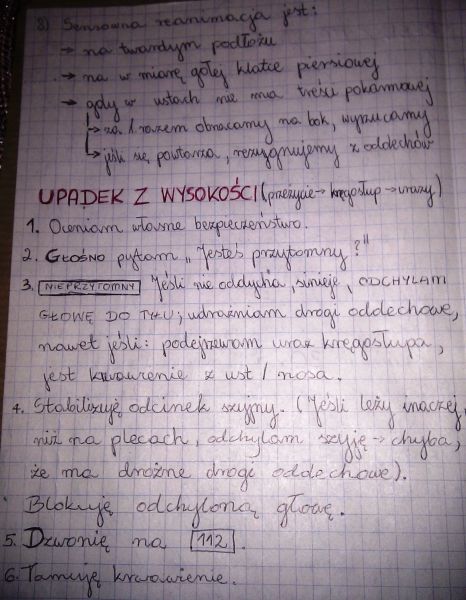 8) Sensowna reanimacja jest:
→ na twardym podłożu
→ na w miarę gołej klatce piersiowej
→ gdy w ustach nie ma treści pokarmowej
↳ za 1 razem obracamy na bok, wyrzucamy
↳ jeśli się powtarza, rezygnujemy z oddechów
UPADEK Z WYSOKOŚCI (przeżycie → kręgosłup → urazy)
1. Oceniam własne bezpieczeństwo.
2. GŁOŚNO pytam „Jesteś przytomny?"
3. NIEPRZYTOMNY Jeśli nie oddycha, sinieje, ODCHYLAM
GŁOWĘ DO TYŁU; udrażniam drogi oddechowe,
nawet jeśli: podejrzewam uraz kręgosłupa,
jest krwawienie z ust / nosa.
4. Stabilizuję odcinek szyjny. (Jeśli leży inaczej,
niż na plecach, odchylam szyję → chyba,
że ma drożne drogi oddechowe).
Blokuję odchyloną głowę.
5. Dzwonię na 112.
6. Tamuję krwawienie.